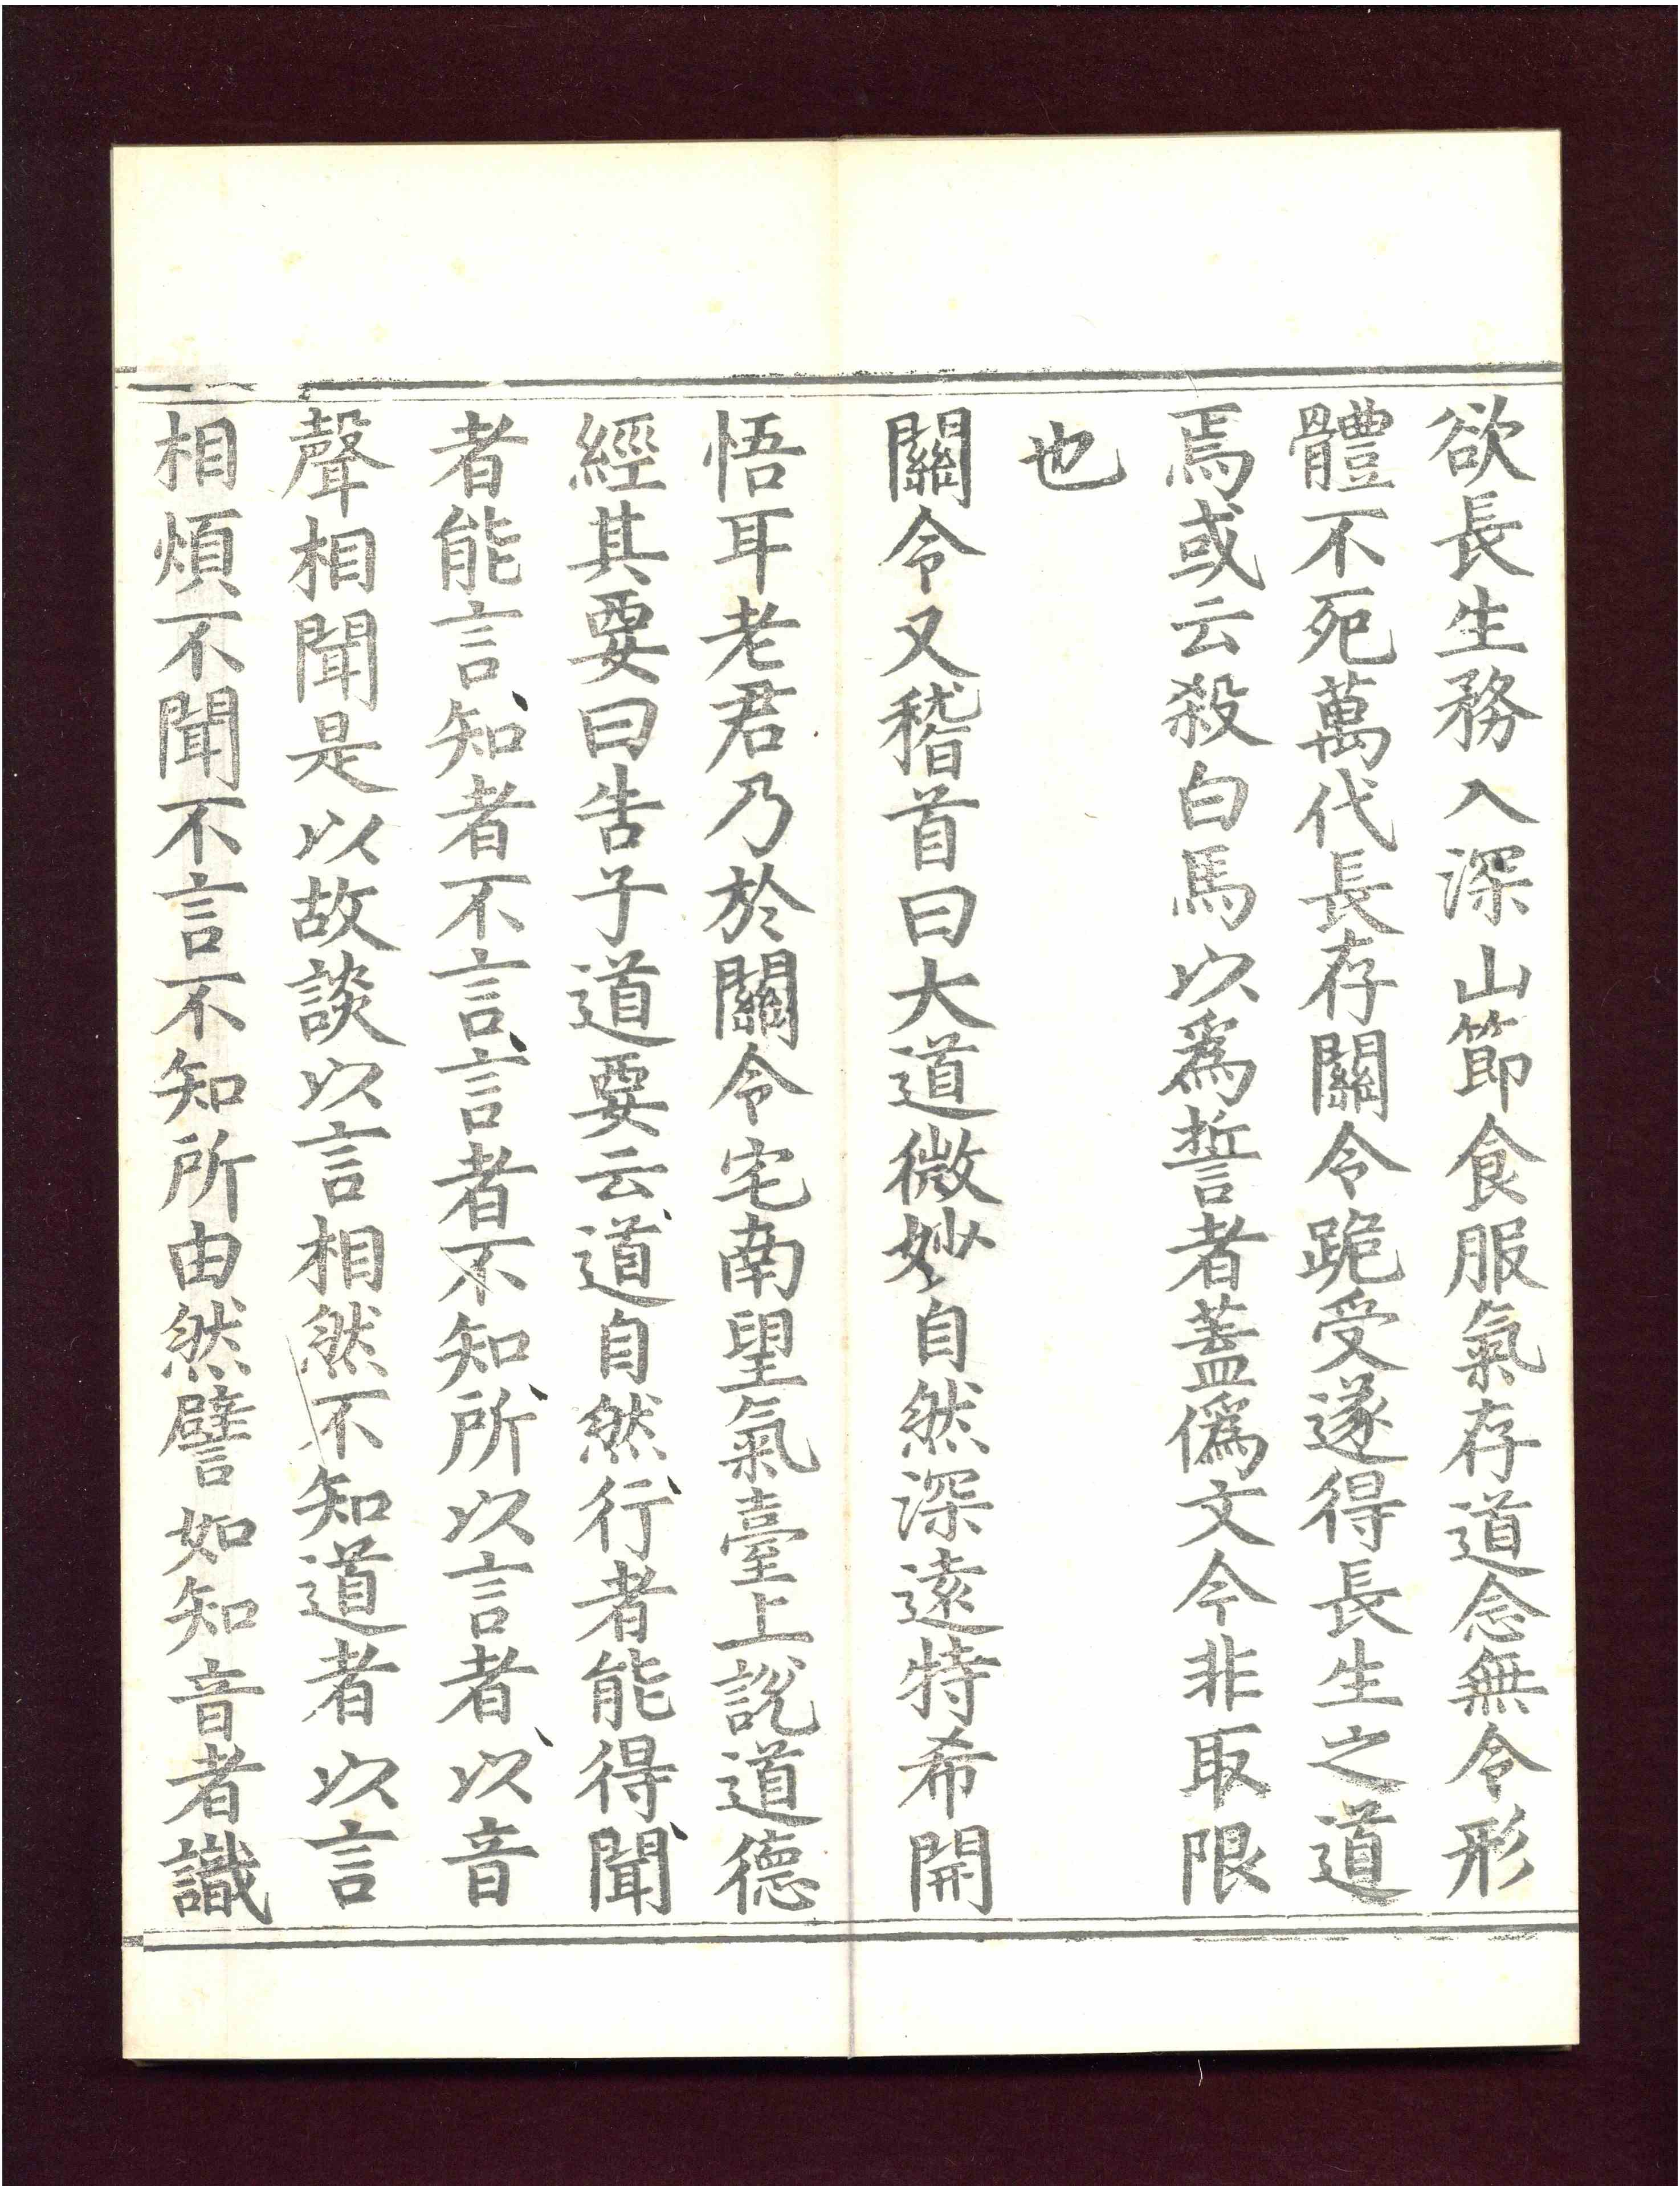 欲長生務入深山節食服氣存道念無令形
體不死萬代長存關令跪受遂得長生之道
焉或云殺白馬以為誓者蓋偽文今非取限
也
關令又稽首曰大道微妙自然深遠特希開
悟耳老君乃於關令宅南望氣臺上說道德
經其要曰告子道要云道自然行者能得聞
者能言知者不言言者不知所以言者以音
聲相聞是以故談以言相然不知道者以言
相煩不聞不言不知所由然譬如知音者識